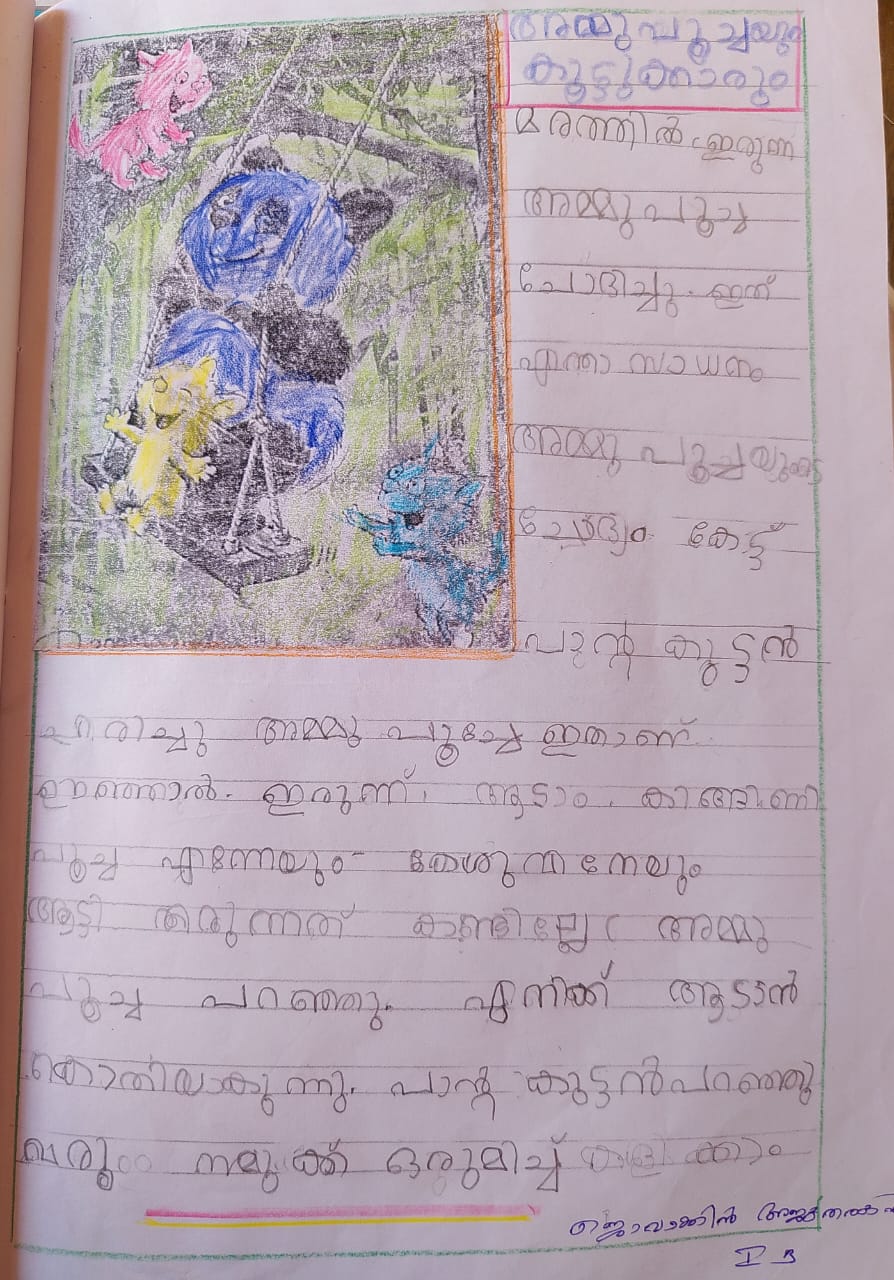 അമ്മു പൂച്ചയും
കൂട്ടുക്കാരും
മരത്തിൽ ഇരുന്ന
അമ്മു പൂച്ച
ചോദിച്ചു. ഇത്
എന്താ സാധനം
അമ്മു പൂച്ചയുടെ
ചോദ്യം കേട്ട്
പാന്റ കുട്ടൻ
ചിരിച്ചു അമ്മു പൂച്ചേ ഇതാണ്
ഊഞ്ഞാൽ. ഇരുന്ന് ആടാം. കിങ്ങിണി
പൂച്ച എന്നേയും
ആട്ടി തരുന്നത് കണ്ടില്ലേ അമ്മു
പൂച്ച പറഞ്ഞു. എനിക്ക് ആടാൻ
കൊതിയാകുന്നു. പാന്റ കുട്ടൻ പറഞ്ഞു
വരും നമുക്ക് ഒരുമിച്ച് കളിക്കാം
I B